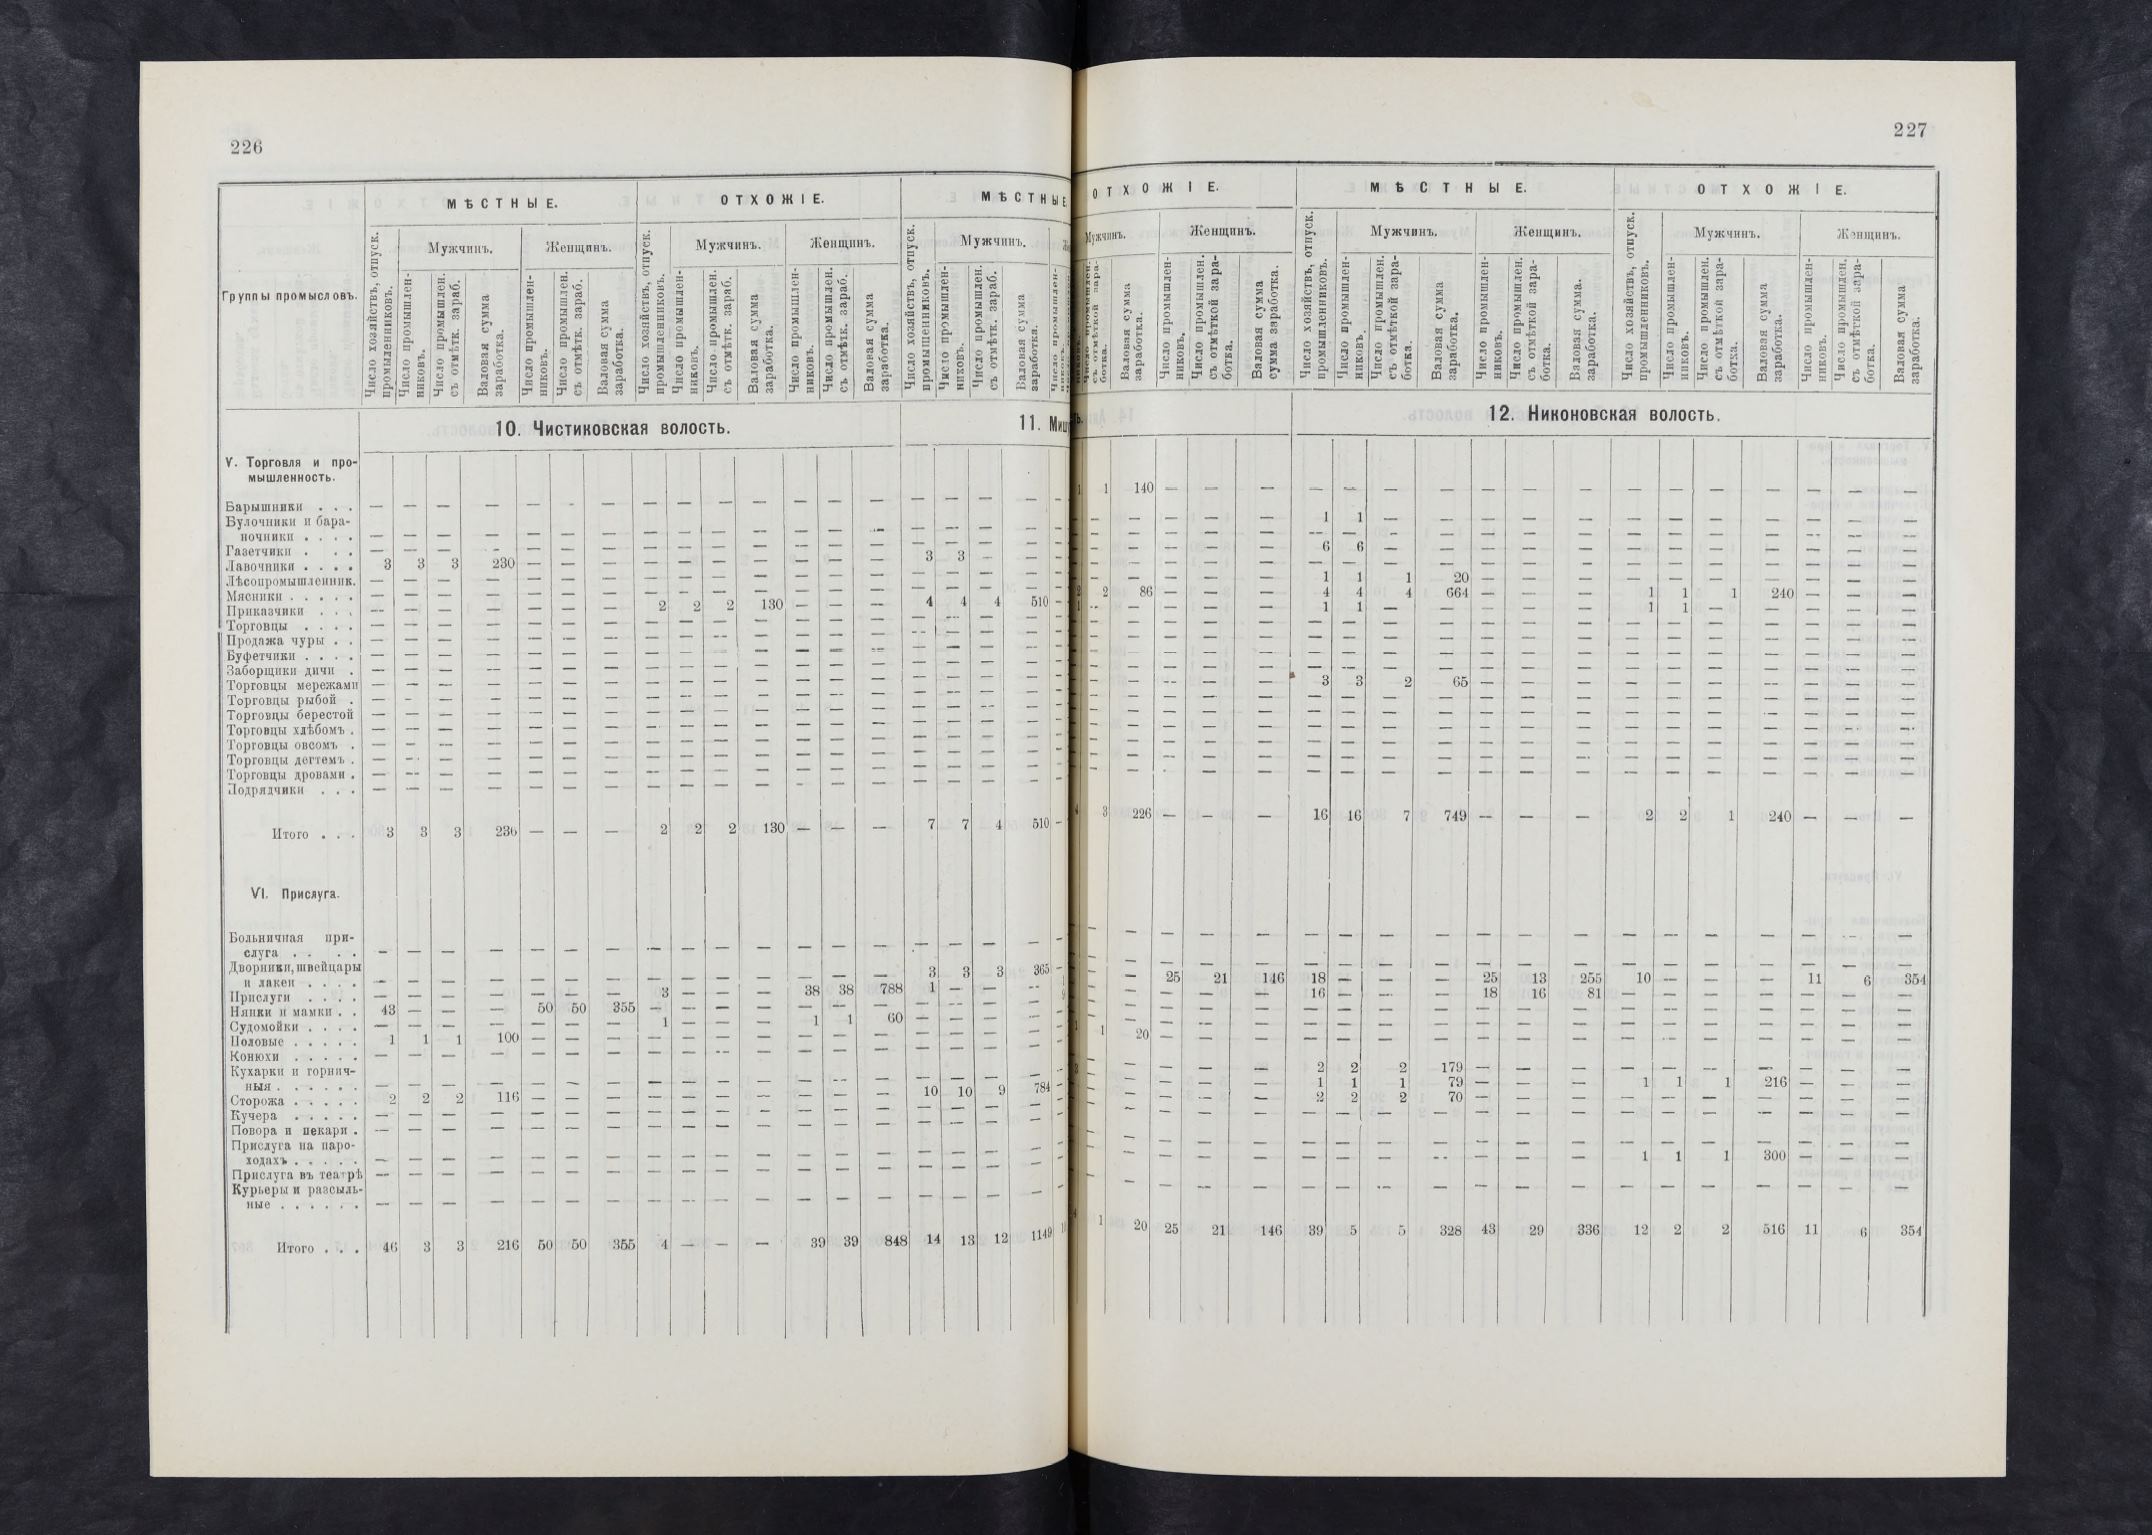 226
МѢСТНЫЕ.
ОТХОЖІЕ.
МѢСТНЫЕ
Группы промысловъ.
Число хозяйствъ, отпуск. промышленниковъ.
Мужчинъ.
Женщинъ.
Число промышленниковъ.
Число промышлен. съ отмѣтк. зараб.
Валовая сумма заработка.
Число промышленниковъ.
Число промышлен. съ отмѣтк. зараб.
Валовая сумма заработка.
Число хозяйствъ, отпуск. промышленниковъ.
Мужчинъ.
Женщинъ.
Число промышленниковъ.
Число промышлен. съ отмѣтк. зараб.
Валовая сумма заработка.
Число промышленниковъ.
Число промышлен. съ отмѣтк. зараб.
Валовая сумма заработка.
Число хозяйствъ, отпуск. промышленниковъ.
Мужчинъ.
Число промышленниковъ.
Число промышлен. съ отмѣтк. зараб.
Валовая сумма заработка.
10. Чистиковская волость.
11.
V. Торговля и про-
мышленность.
Барышники . . . — — — — — — — — — — — — — — — — —
Булочники и бара-
ночники . . . . — — — — — — — — — — — — — — — — —
Газетчики . . . — — — — — — — — — — — — — — — — —
Лавочники . . . . 3 3 3 230 — — — — — — — — — — 3 3 — —
Лѣсопромышленник. — — — — — — — — — — — — — — — — —
Мясники . . . . . — — — — — — — — — — — — — — — — —
Приказчики . . . — — — — — — — 2 2 2 130 — — — 4 4 4 510
Торговцы . . . . — — — — — — — — — — — — — — — — —
Продажа чуры . . — — — — — — — — — — — — — — — — —
Буфетчики . . . . — — — — — — — — — — — — — — — — —
Заборщики дичи . — — — — — — — — — — — — — — — — —
Торговцы мережами — — — — — — — — — — — — — — — — —
Торговцы рыбой . — — — — — — — — — — — — — — — — —
Торговцы берестой — — — — — — — — — — — — — — — — —
Торговцы хлѣбомъ . — — — — — — — — — — — — — — — — —
Торговцы овсомъ . — — — — — — — — — — — — — — — — —
Торговцы дегтемъ . — — — — — — — — — — — — — — — — —
Торговцы дровами . — — — — — — — — — — — — — — — — —
Подрядчики . . . — — — — — — — — — — — — — — — — —
Итого . . . 3 3 3 230 — — — 2 2 2 130 — — — 7 7 4 510
VI. Прислуга.
Больничная при-
слуга . . . . — — — — — — — — — — — — — — — — —
Дворники, швейцары
и лакеи . . . . — — — — — — — — — — — — — — 3 3 3 365
Прислуги . . . . — — — — — — — 3 — — — 38 38 788 1 — — —
Няньки и мамки . . 43 — — — 50 50 355 — — — — — — — — — — —
Судомойки . . . . — — — — — — — 1 — — — 1 1 60 — — — —
Половые . . . . . 1 1 1 100 — — — — — — — — — — — — — —
Конюхи . . . . . — — — — — — — — — — — — — — — — —
Кухарки и горнич-
ныя . . . . . . — — — — — — — — — — — — — — — — —
Сторожа . . . . . 2 2 2 116 — — — — — — — — — — 10 10 9 784
Кучера . . . . . — — — — — — — — — — — — — — — — —
Повора и пекари . — — — — — — — — — — — — — — — — —
Прислуга на паро-
ходахъ . . . . . — — — — — — — — — — — — — — — — —
Прислуга въ театрѣ — — — — — — — — — — — — — — — — —
Курьеры и разсыль-
ные . . . . . . — — — — — — — — — — — — — — — — —
Итого . . . 46 3 3 216 50 50 355 4 — — — 39 39 848 14 13 12 1149
227
ОТХОЖІЕ.
МѢСТНЫЕ.
ОТХОЖІЕ.
Мужчинъ.
Женщинъ.
Валовая сумма заработка.
Число промышленниковъ.
Число промышлен. съ отмѣткой заработка.
Валовая сумма сумма заработка.
Число хозяйствъ, отпуск. промышленниковъ.
Мужчинъ.
Женщинъ.
Число промышленниковъ.
Число промышлен. съ отмѣткой заработка.
Валовая сумма заработка.
Число промышленниковъ.
Число промышлен. съ отмѣткой заработка.
Валовая сумма. заработка.
Число хозяйствъ, отпуск. промышленниковъ.
Мужчинъ.
Женщинъ.
Число промышленниковъ.
Число промышлен. съ отмѣткой заработка.
Валовая сумма заработка.
Число промышленниковъ.
Число промышлен. съ отмѣткой заработка.
Валовая сумма заработка.
12. Никоновская волость.
1 1 140 — — — — — — — — — — — — — — — — —
— — — — — 1 1 — — — — — — — — — — — —
— — — — — — — — — — — — — — — — — — —
— — — — — 6 6 — — — — — — — — — — — —
— — — — — — — — — — — — — — — — — — —
— — — — — 1 1 1 20 — — — — — — — — — —
2 2 86 — — — 4 4 4 664 — — — 1 1 1 240 — — —
1 — — — — — 1 1 — — — — — 1 1 — — — — —
3 3 2 65 — — — — — — — — — —
4 3 226 — — — 16 16 7 749 — — — 2 2 1 240 — — —
— — 25 21 146 18 — — — 25 13 255 10 — — — 11 6 354
— — — — — 16 — — — 18 16 81 — — — — — — —
1 1 20 — — — — — — — — — — — — — — — — —
3 — — — — — 2 2 2 179 — — — — — — — — — —
— — — — — 1 1 1 79 — — — 1 1 1 216 — — —
— — — — — 2 2 2 70 — — — — — — — — — —
— — — — — — — — — — — — 1 1 1 300 — — —
4 1 20 25 21 146 39 5 5 328 43 29 336 12 2 2 516 11 6 354